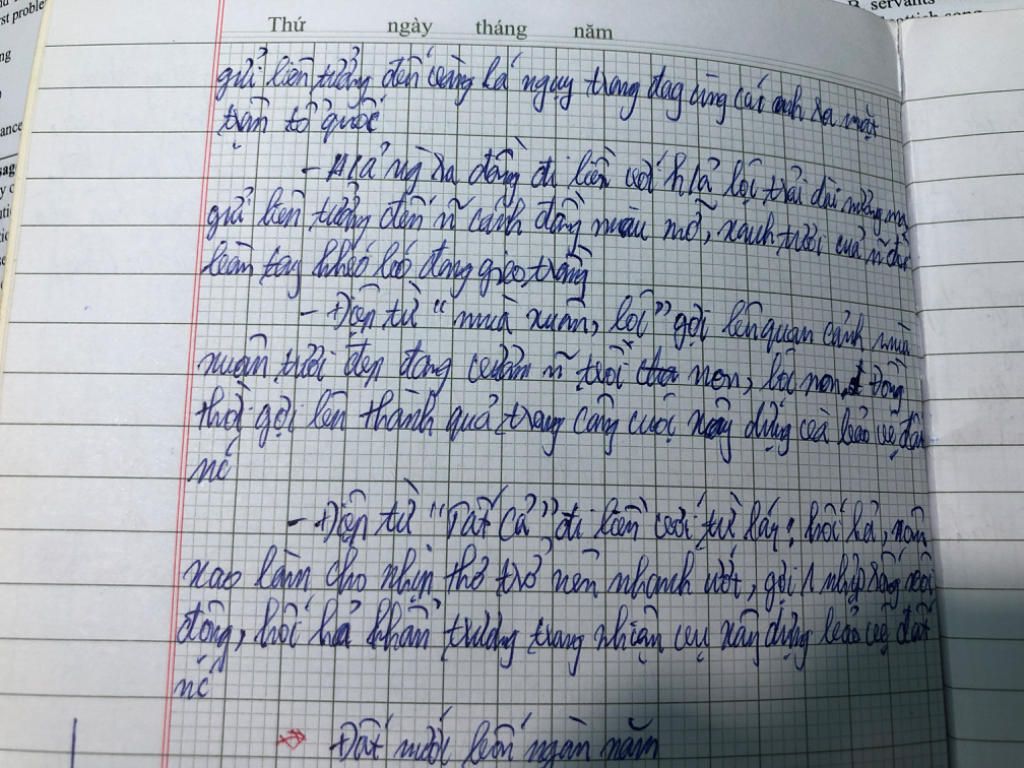 rst proble
ng
ance
B. servants
Thứ ngày tháng năm
gửi liên tưởng đến vòng lá ngụy trang đag cùng các anh ra mặt
trận tổ quốc
- H/ả ng ra đồng đi liền với h/ả lộc trải dài nương mạ
gửi liên tưởng đến ~ cánh đồng màu mỡ, xanh tươi của ~
tay khéo léo đang gieo trồng
- Điệp từ “mùa xuân, lộc” gợi lên quan cảnh mùa
xuân tươi đẹp đang ~ non, lộc non, đồng
thời gợi lên thành quả trong công cuộc xây dựng và bảo vệ đất
nc
- Điệp từ “Tất cả” đi liền với từ láy: hối hả, xôn
xao làm cho nhịp thơ trở nên nhanh ướt, gợi 1 nhịp sống sôi
động, hối hả khẩn trương trong nhiệm vụ xây dựng bảo vệ đất
nc
Đất nước bốn ngàn năm